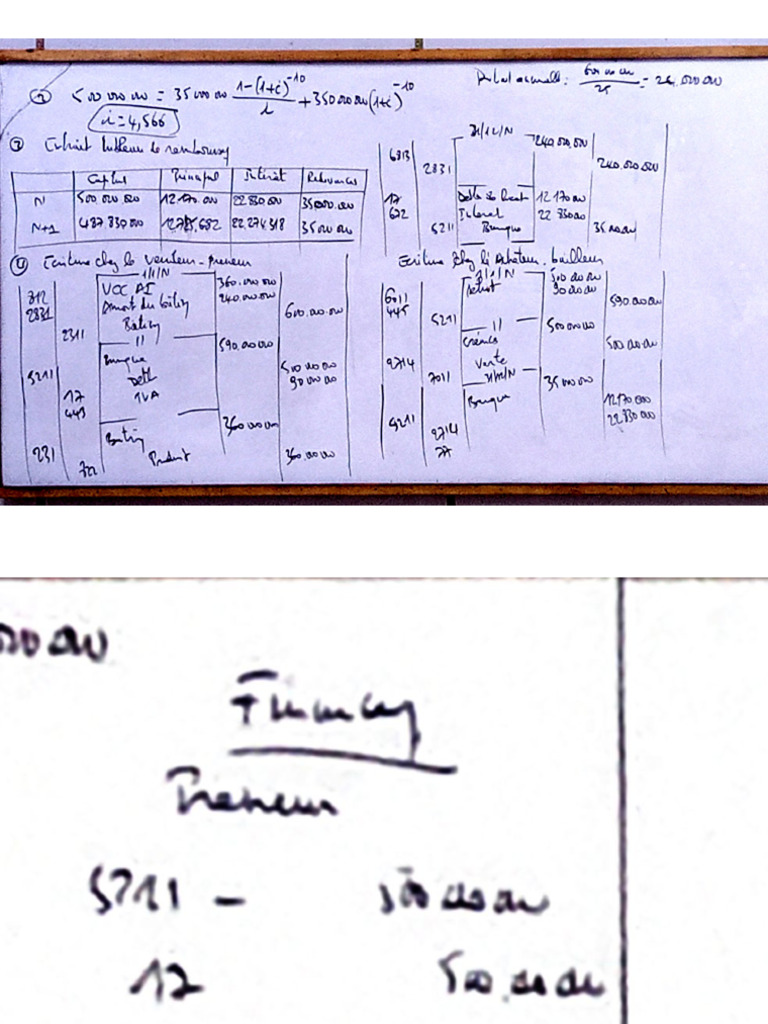 ② 500 000 000 = 35 000 000 1-(1+i)^-10 / i + 350 000 000 (1+i)^-10
i = 4,566
③ Extrait tableau de remboursement
Capital Principal Intérêt Redevances
N 500 000 000 12 170 000 22 830 000 35 000 000
N+1 487.830 000 22 274.318 35 000 000
④ Ecriture chez le vendeur-preneur
1/1/N
812 VOC AI 360.000.000
2831 Amort du bâtim 240.000.000
2311 Bâtim 600.000.000
11
5211 Banque 590.000.000
17 Dett 500 000 000
443 TVA 90 000 000
231 Batim 360 000 000
722 Produit 360.000.000
600 000 000 / 25 = 24.000 000
31/12/N
6813 240.000.000
2831 240.000.000
17 Dette de 12 170 000
672 Interet 22 830 000
5211 Banque 35 000 000
Ecriture chez l'Acheteur-bailleur
1/1/N
6011 500 000 000
445 90 000 000
5211 590 000 000
11
2714 Créance 500 000 000
7011 Vente 500 000 000
31/12/N
5211 Banque 35 000 000
2714 12 170 000
77 22 830 000
000 000
Preneur
5211 - 500 000 000
17 500.000 000